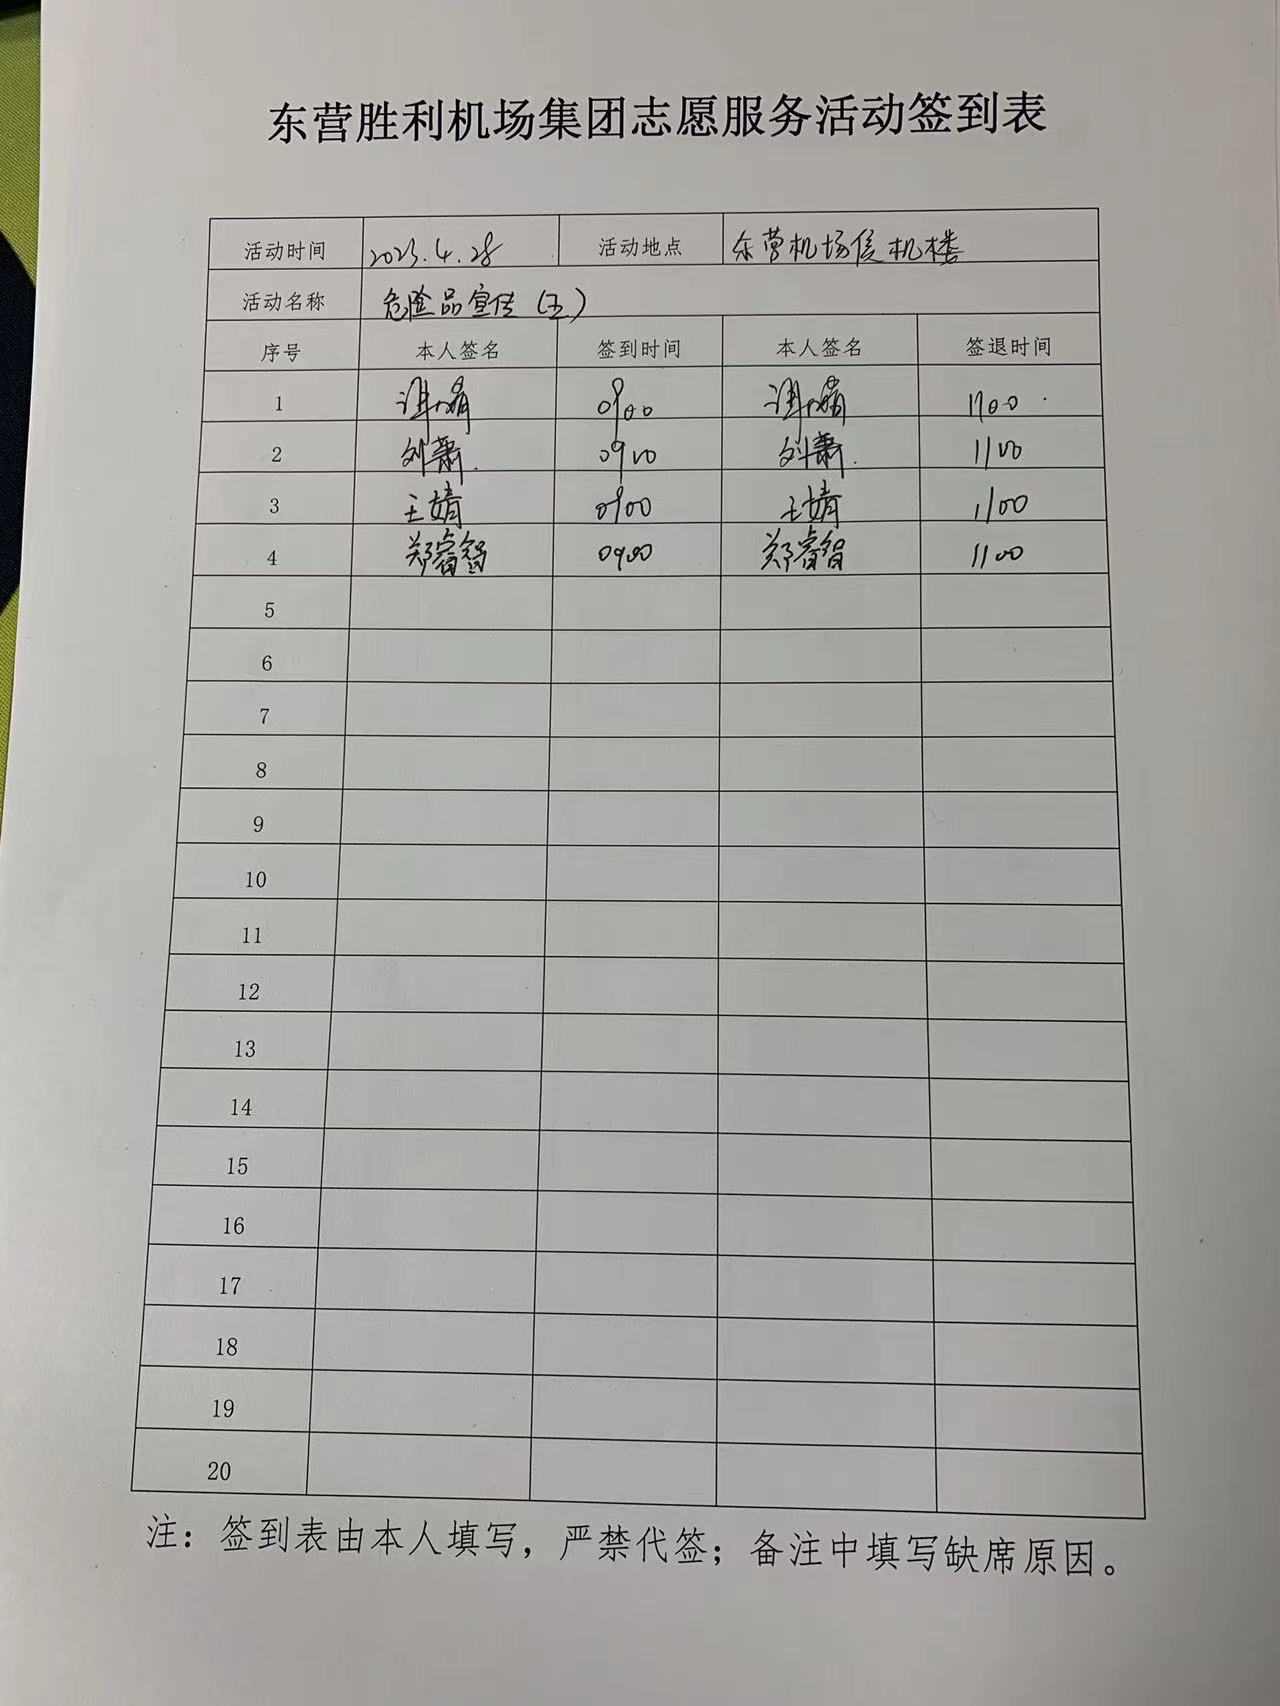 东营胜利机场集团志愿服务活动签到表
活动时间 2023.4.28 活动地点 东营机场候机楼
活动名称 危险品宣传(五)
序号 本人签名 签到时间 本人签名 签退时间
1 0900 1100
2 刘萧 0900 刘萧 1100
3 王婧 0900 王婧 1100
4 郑睿智 0900 郑睿智 1100
5
6
7
8
9
10
11
12
13
14
15
16
17
18
19
20
注：签到表由本人填写，严禁代签；备注中填写缺席原因。